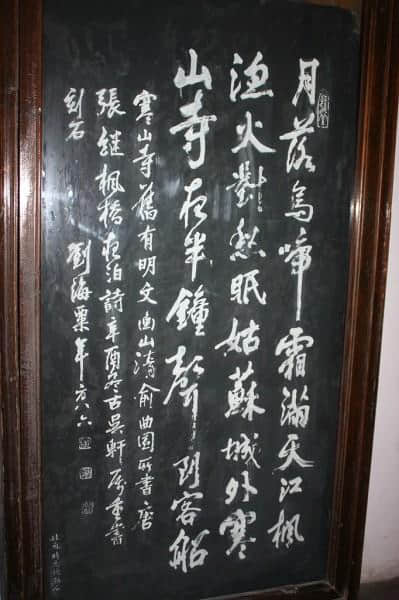 月落烏啼霜滿天江楓
漁火對愁眠姑蘇城外寒
山寺夜半鐘聲到客船
寒山寺舊有明文画山清俞曲園所書唐
張継楓橋夜泊詩辛酉冬古吳軒属重書
刻石 劉海粟年方八六